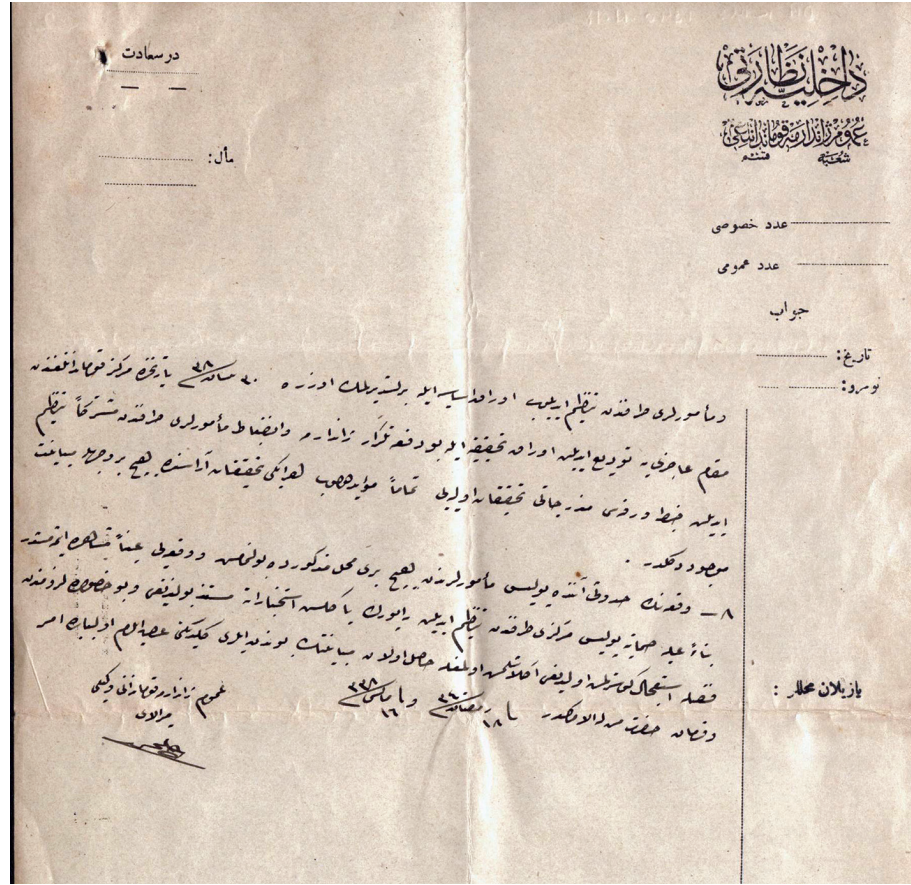 داخلیه نظارتی
عموم ژاندارمه قوماندانلغی
شعبه قسم
درسعادت
مأل:
عدد خصوصی
عدد عمومی
جواب
تاریخ:
نومرو:
و مأمورلری طرفندن تنظیم ایدیلوب اوراق اساسیه ایله برلشدیرلمك اوزره ٣٠ نیسان ٣٨ تاریخنده مركز قوماندانلغندن
مقام عاجزی یه تودیع ایدیلن اوراق تحقیقیه ایله بو دفعه تكرار ژاندارمه و انضباط مأمورلری طرفندن مشتركاً تنظیم
ایدیلن ضبط ورقه سی مندرجاتی تحقیقات اولیه یی تماماً مؤید اولوب هر ایكی تحقیقات آراسنده هیچ بر وجهله مباینت
موجود دكلدر .
٨ – وقعه نك حدوثی آننده پولیس مأمورلرندن هیچ بری محل مذكورده بولنمامش و وقوعی عیناً مشاهده ایتمه مشدر
بناءً علیه پولیس مركزی طرفندن تنظیم ایدیلن راپورك یاكلش استخباراته مستند بولندیغی و بو خصوصده
اولدیغی آكلاشلمش اولمغله حاصل اولان مباینتك بوندن ایلری كلدیكی عرض اولنور اولبابده امر
و فرمان حضرت من له الامركدر ١٨ رمضان ٣٤٠ و ١٦ مایس ٣٣٨
عموم ژاندارمه قوماندانی وكیلی
میرالای
یازیلان محللر :